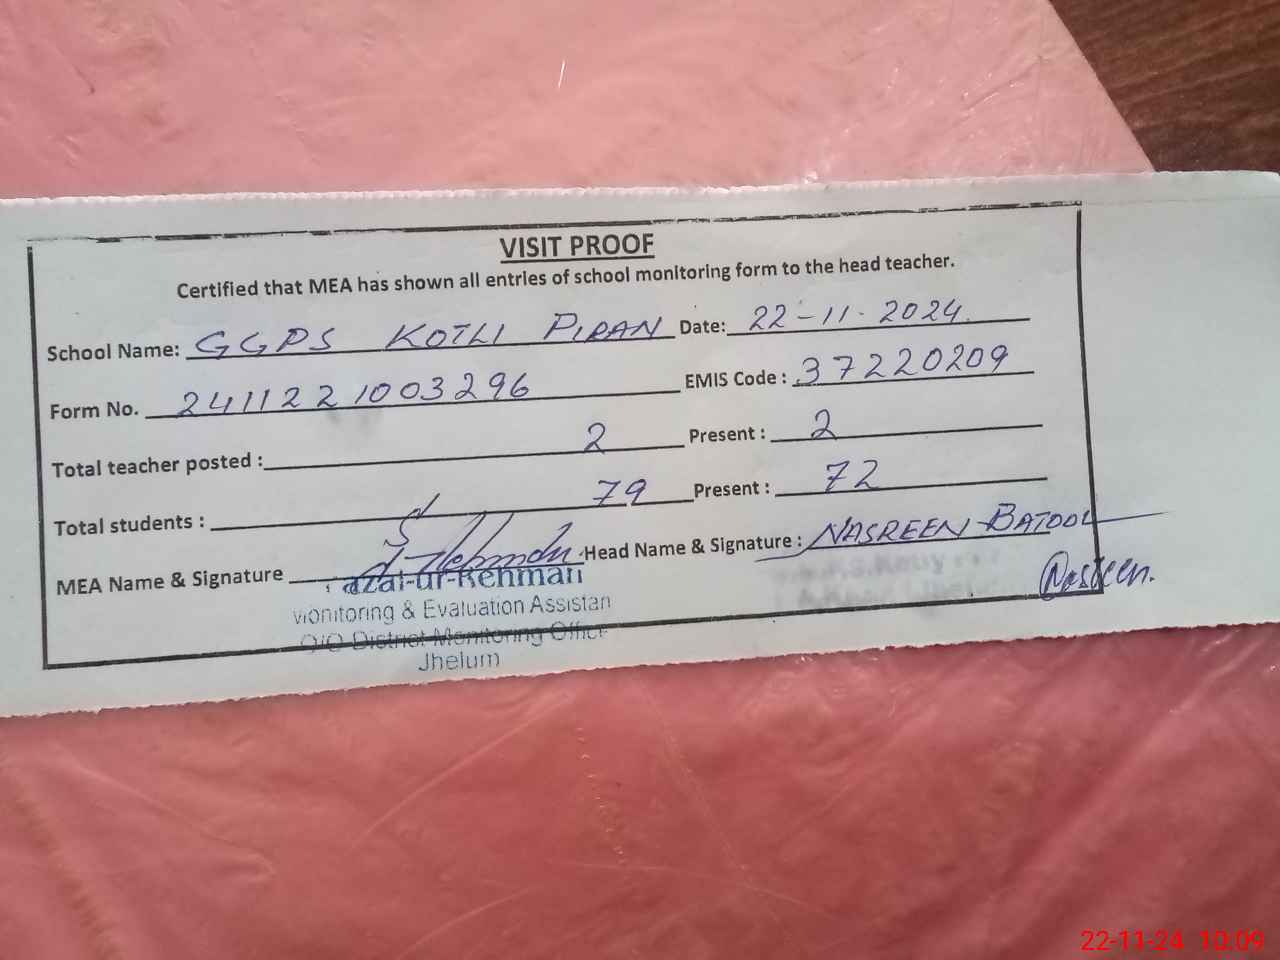 VISIT PROOF
Certified that MEA has shown all entries of school monitoring form to the head teacher.
School Name: GGPS KOTLI PIRAN Date: 22-11-2024.
Form No. 2411221003296 EMIS Code : 37220209
Total teacher posted : 2 Present : 2
Total students : 79 Present : 72
MEA Name & Signature Head Name & Signature : NASREEN BATOOL
azal-ur-Rehman Nasreen.
Monitoring & Evaluation Assistan
O/O District Monitoring Office
Jhelum
22-11-24 10:09